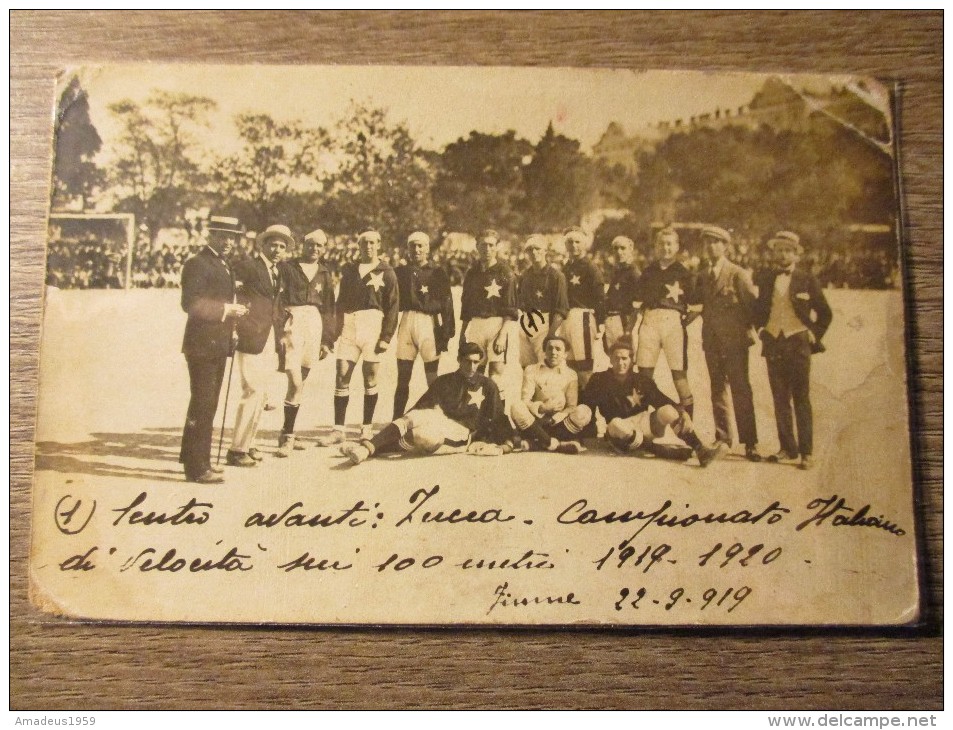 (1)
(1) Centro avanti: Zucca - Campionato Italiano
di Velocità sui 100 metri 1919 - 1920 -
Fiume 22-9-919
Amadeus1959
www.delcampe.net